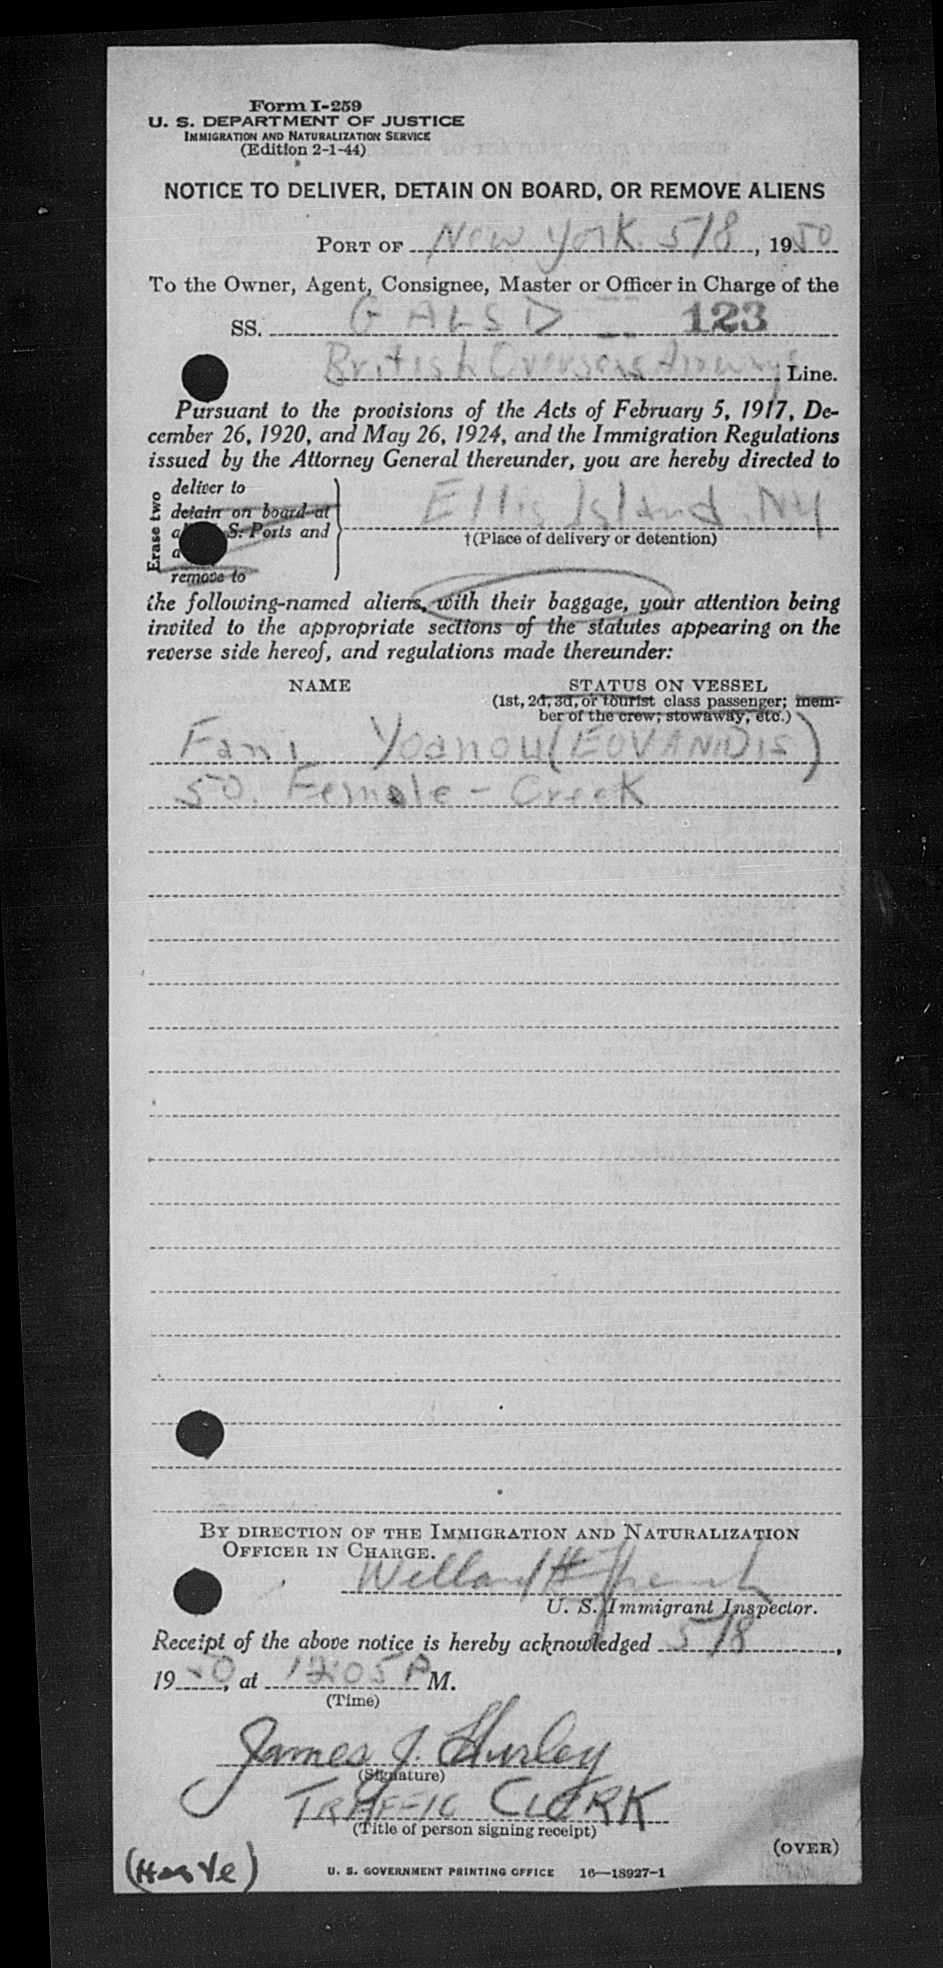 Form I-259
U. S. DEPARTMENT OF JUSTICE
IMMIGRATION AND NATURALIZATION SERVICE
(Edition 2-1-44)
NOTICE TO DELIVER, DETAIN ON BOARD, OR REMOVE ALIENS
PORT OF New York 5/8, 1950
To the Owner, Agent, Consignee, Master or Officer in Charge of the
SS. G ALSD 123
British Overseas Airways Line.
Pursuant to the provisions of the Acts of February 5, 1917, De-
cember 26, 1920, and May 26, 1924, and the Immigration Regulations
issued by the Attorney General thereunder, you are hereby directed to
Erase two
deliver to
detain on board at
S. Ports and
remove to
Ellis Island, NY
†(Place of delivery or detention)
the following-named aliens, with their baggage, your attention being
invited to the appropriate sections of the statutes appearing on the
reverse side hereof, and regulations made thereunder:
NAME STATUS ON VESSEL
(1st, 2d, 3d, or tourist class passenger; mem-
ber of the crew; stowaway, etc.)
Fani Yoanou (EOVANIDIS)
50. Female - Greek
BY DIRECTION OF THE IMMIGRATION AND NATURALIZATION
OFFICER IN CHARGE.
Willard H
U. S. Immigrant Inspector.
Receipt of the above notice is hereby acknowledged 5/8,
1950, at 12:05 P M.
(Time)
James J. Hurley
(Signature)
TRAFFIC CLERK
(Title of person signing receipt)
(OVER)
U. S. GOVERNMENT PRINTING OFFICE 16—18927-1